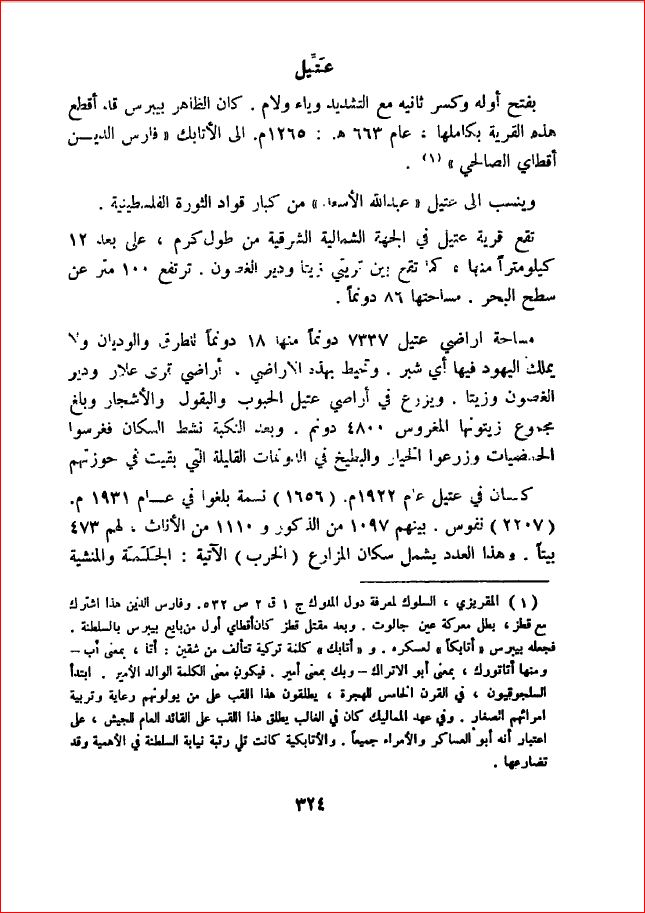 عَتِّيل
بفتح أوله وكسر ثانيه مع التشديد وياء ولام . كان الظاهر بيبرس قد أقطع
هذه القرية بكاملها ، عام ٦٦٣ هـ . : ١٢٦٥م. الى الأتابك « فارس الديــن
أقطاي الصالحي » (١) .
وينسب الى عتيل « عبدالله الأسعد » من كبار قواد الثورة الفلسطينية .
تقع قرية عتيل في الجهة الشمالية الشرقية من طول كرم ، على بعد ١٢
كيلومتراً منها ، كما تقع بين قريتي زيتا ودير الغصون . ترتفع ١٠٠ متر عن
سطح البحر . مساحتها ٨٦ دونماً .
مساحة اراضي عتيل ٧٣٣٧ دونماً منها ١٨ دونماً للطرق والوديان ولا
يملك اليهود فيها أي شبر . وتحيط بهذه الاراضي . أراضي قرى علار ودير
الغصون وزيتا . ويزرع في أراضي عتيل الحبوب والبقول والأشجار وبلغ
مجموع زيتونها المغروس ٤٨٠٠ دونم . وبعد النكبة نشط السكان فغرسوا
الحمضيات وزرعوا الخيار والبطيخ في الدونمات القليلة التي بقيت في حوزتهم
كــان في عتيل عام ١٩٢٢م. (١٦٥٦) نسمة بلغوا في عــام ١٩٣١ م.
(٢٢٠٧) نفوس . بينهم ١٠٩٧ من الذكور و ١١١٠ من الأناث ، لهم ٤٧٣
بيتاً . وهذا العدد يشمل سكان المزارع (الخرب) الآتية : الجلمة والمنشية
(١) المقريزي ، السلوك لمعرفة دول الملوك ج ١ ق ٢ ص ٥٣٢. وفارس الدين هذا اشترك
مع قطز، بطل معركة عين جالوت . وبعد مقتل قطز كان أقطاي أول من بايع بيبرس بالسلطنة .
فجعله بيبرس « أتابكاً » لعسكره . و « أتابك » كلمة تركية تتألف من شقين : أتا ، بمعنى أب –
ومنها أتاتورك ، بمعنى أبو الاتراك – وبك بمعنى أمير . فيكون معنى الكلمة الوالد الأمير . ابتدأ
السلجوقيون ، في القرن الخامس للهجرة ، يطلقون هذا اللقب على من يولونهم رعاية وتربية
امرائهم الصغار . وفي عهد المماليك كان في الغالب يطلق هذا اللقب على القائد العام للجيش ، على
اعتبار أنه أبو العساكر والأمراء جميعاً . والأتابكية كانت تلي رتبة نيابة السلطنة في الأهمية وقد
تضارعها .
٣٢٤